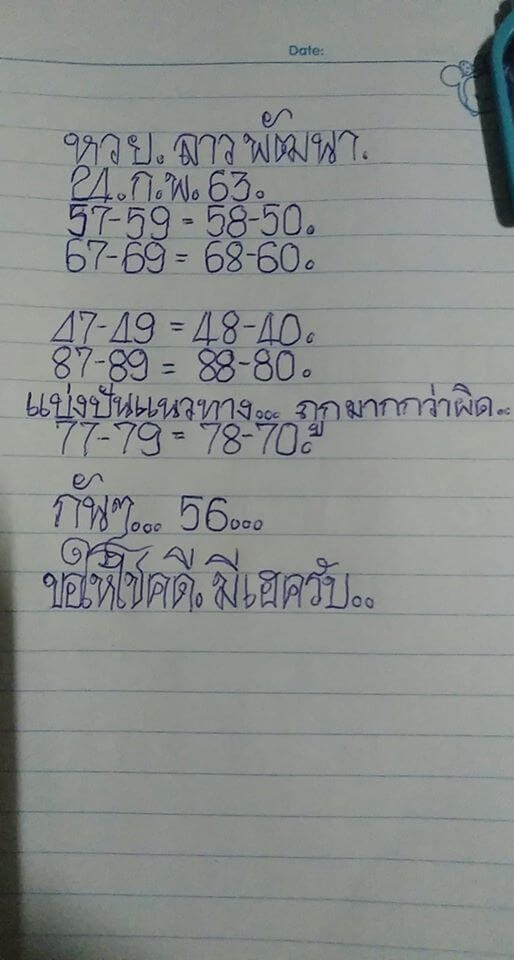 Date:
หวย. ลาวพัฒนา.
24.ก.พ. 63.
57-59 = 58-50.
67-69 = 68-60.
47-49 = 48-40.
87-89 = 88-80.
แบ่งปันแนวทาง... ถูกมากกว่าผิด..
77-79 = 78-70.
กันๆ... 56...
ขอให้โชคดี. มีเฮครับ..